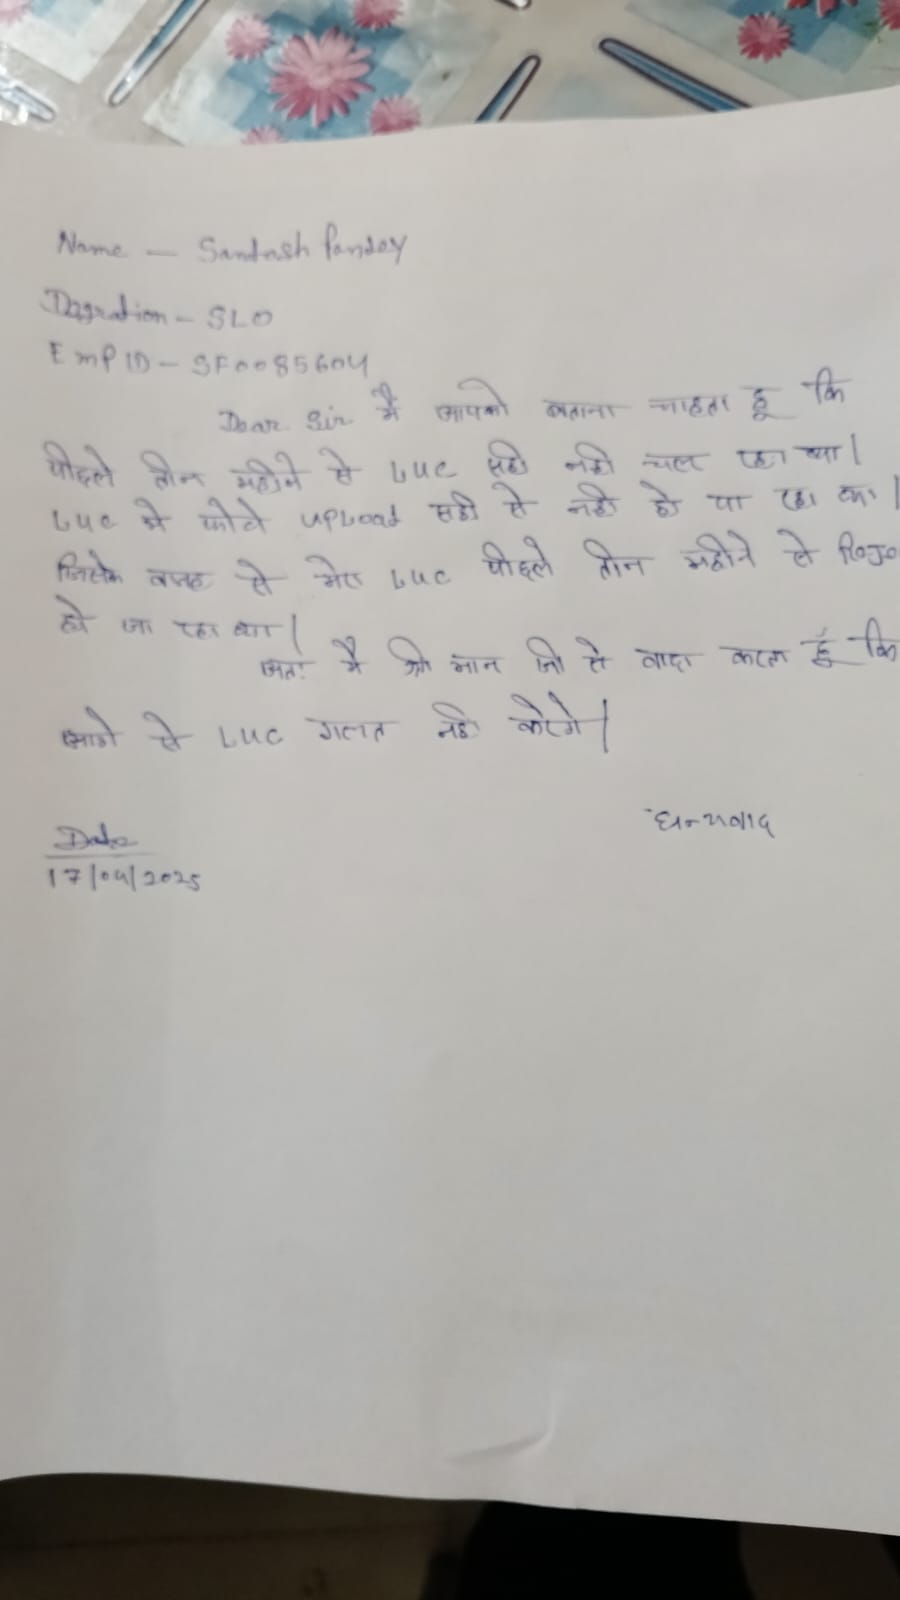 Name - Santosh Pandey
Dggration - SLO
Emp ID - SF0085604
Dear Sir मैं आपको बताना चाहता हूँ कि
पीछले तीन महीने से LUC सही नही चल रहा था।
LUC में फोटो upload सही से नही हो पा रहा था।
जिसके वजह से मेरा LUC पीछले तीन महीने से Reje
हो जा रहा था।
अतः मैं श्री मान जी से वादा करता हूँ कि
आगे से LUC गलत नही करेगे।
धन्यवाद
Date
17/04/2025